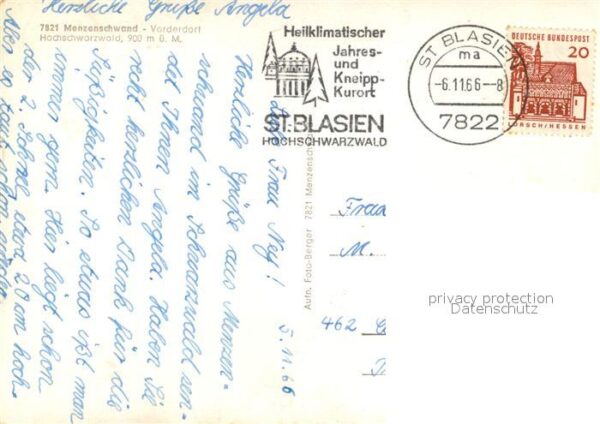 Herzliche Grüße Angela
7821 Menzenschwand - Vorderdorf
Hochschwarzwald, 900 m ü. M.
5.11.66
Liebe Frau Ney!
Herzliche Grüße aus Menzen-
schwand im Schwarzwald sen-
det Ihnen Angela. Haben Sie
recht herzlichen Dank für die
Süßigkeiten. So etwas ißt man
immer gern. Hier liegt schon
der 2. Schnee, etwa 20 cm hoch.
Aber so
Aufn. Foto-Berger 7821 Menzenschw
Heilklimatischer
Jahres-
und
Kneipp-
Kurort
ST. BLASIEN
HOCHSCHWARZWALD
ST BLASIEN
ma
-6.11.66-8
7822
DEUTSCHE BUNDESPOST
20
LORSCH/HESSEN
Frau
M.
462
privacy protection
Datenschutz